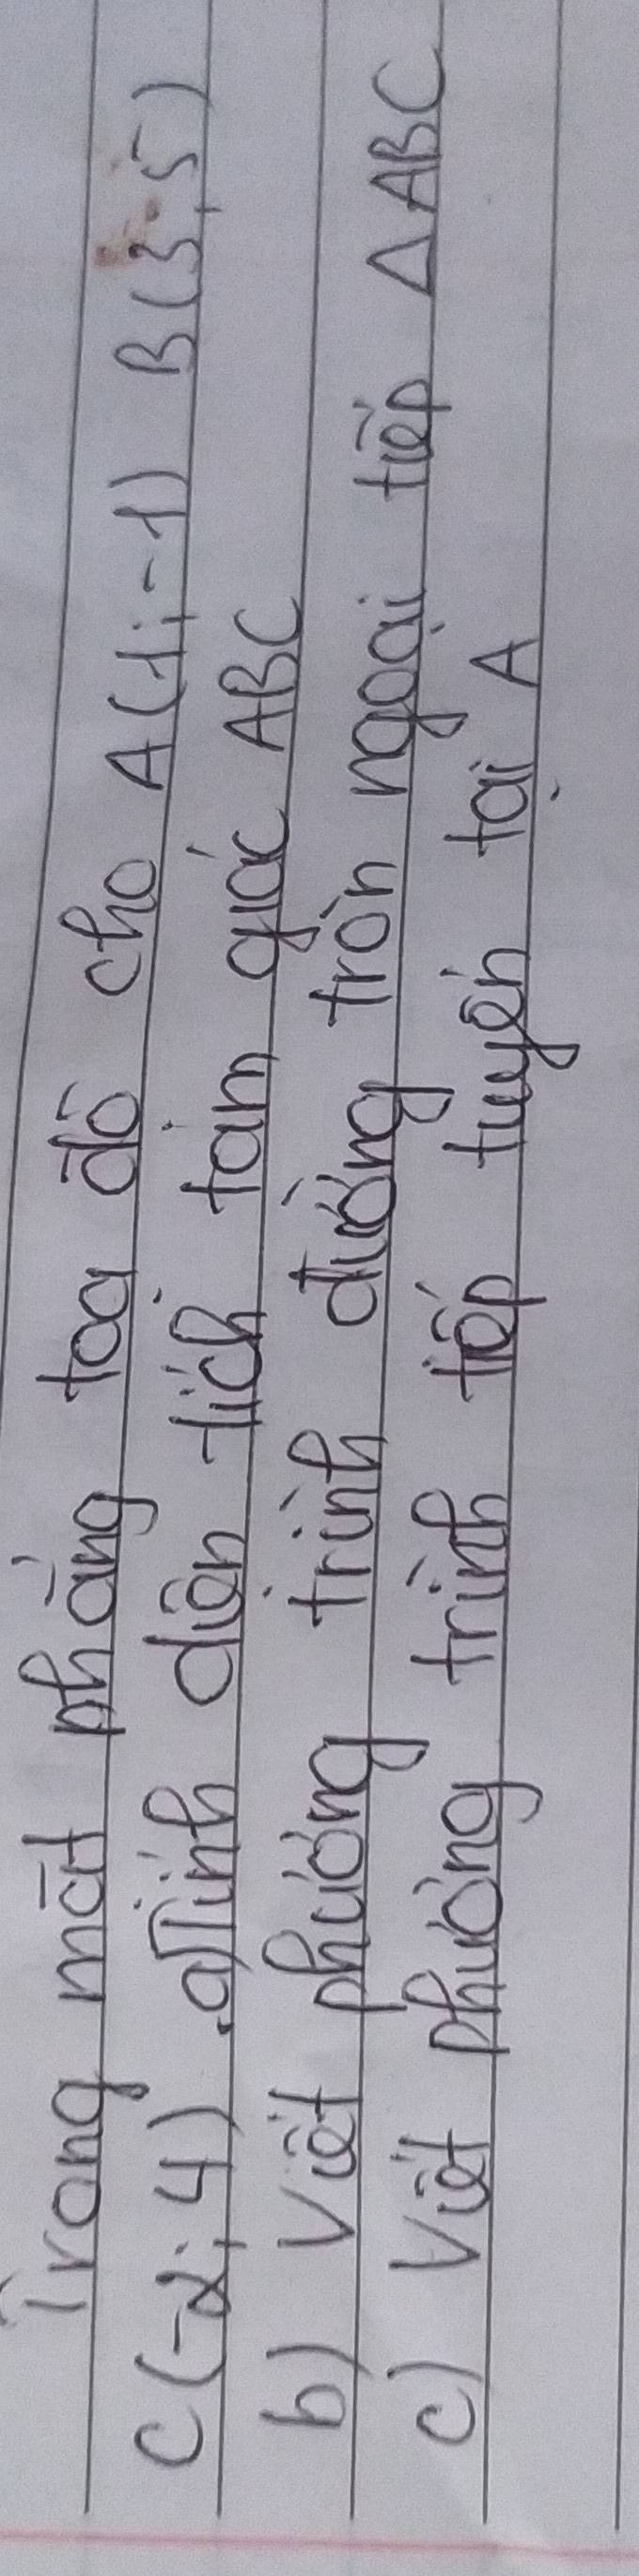 Trong mặt phẳng toạ độ cho A(1;-1) B(3;5)
C(-2;4) .a) Tính diện tích tam giác ABC
b) Viết phương trình đường tròn ngoại tiếp △ABC
c) Viết phương trình tiếp tuyến tại A